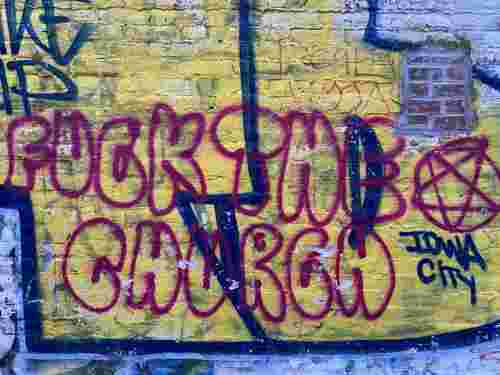 FUCK THE
CHURCH
IOWA
CITY